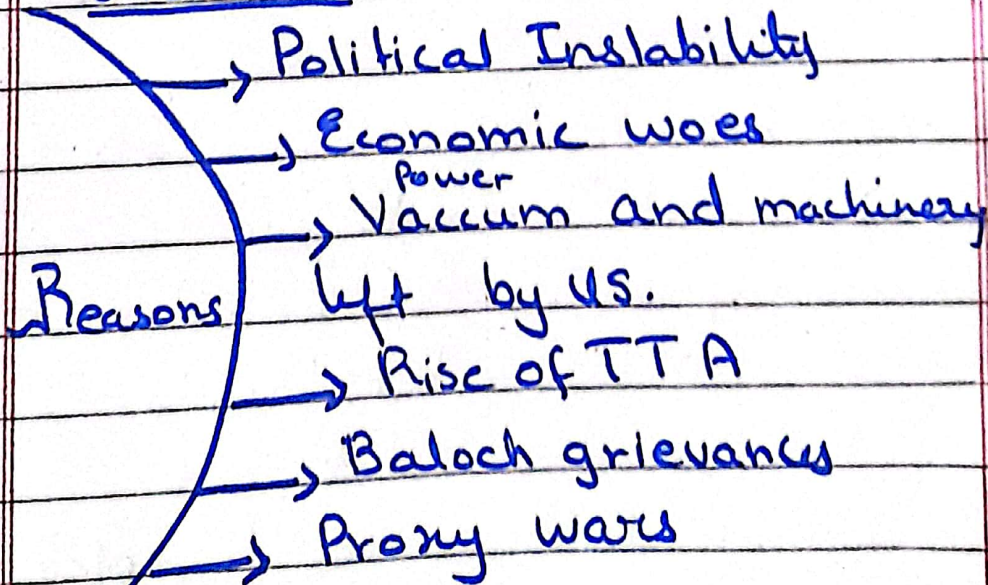 Political Inslability
Economic woes
Power
Vaccum and machinery
Reasons left by US.
Rise of TTA
Baloch grievances
Proxy wars